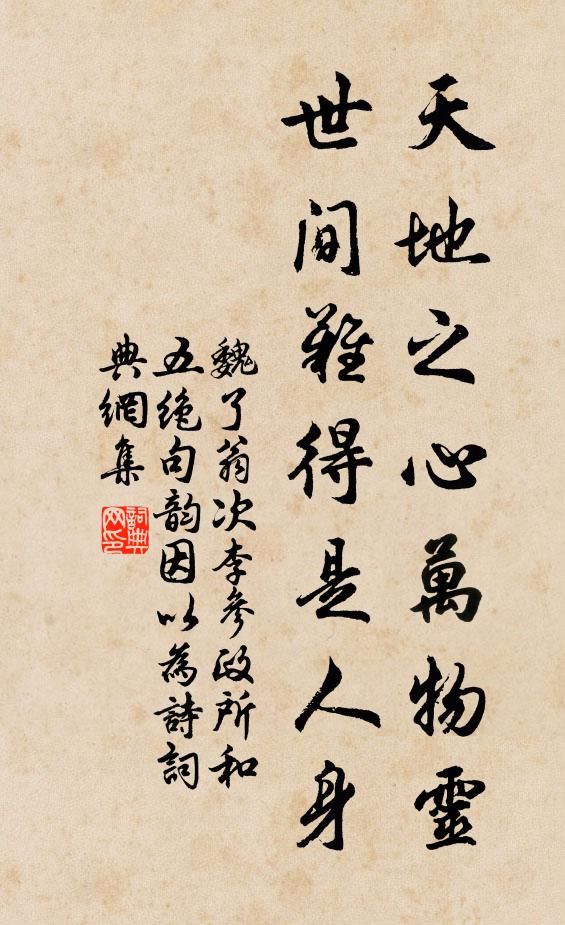 天地之心萬物靈
世間難得是人身
魏了翁次李參政所和
五絕句韵因以為詩詞
典網集
詞典网印